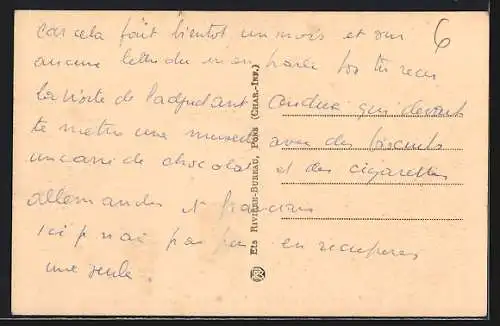 car cela fait bientôt un mois et oui 6
aucune lettre m'en parle tu reçu
la visite de l'adjudant Andrieu qui devait
te mettre une musette avec des biscuits
un carré de chocolat et des cigarettes
allemandes et françaises
ici j'ai pas pu en récupérer
une seule
Ets RIVIÈRE-BUREAU, PONS (CHAR.-INF.)